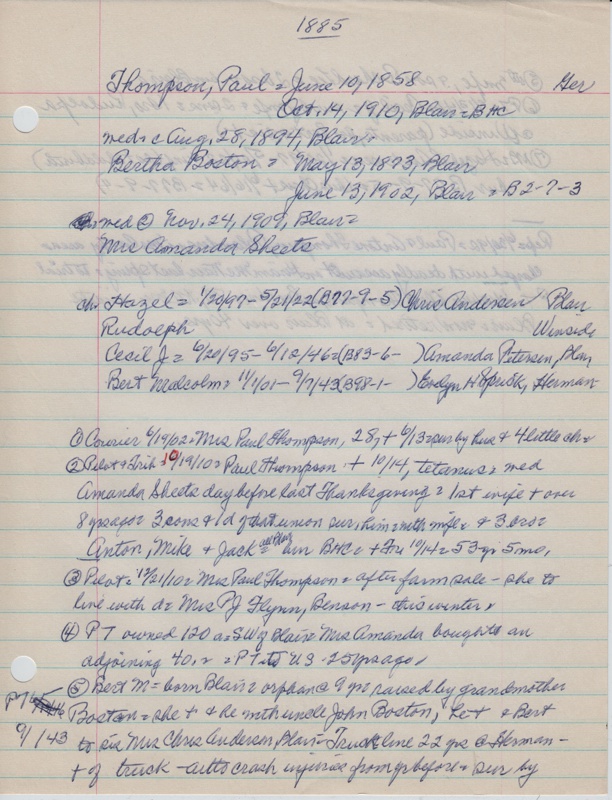 1885
Thompson, Paul = June 10, 1858 Ger
Oct. 14, 1910, Blair = BHC
med = c Aug. 28, 1894, Blair =
Bertha Boston = May 13, 1873, Blair
June 13, 1902, Blair = B2-7-3
med @ Nov. 24, 1909, Blair =
Mrs Amanda Sheets
ch = Hazel = 1/20/97 - 5/21/22 (B77-9-5) Chris Andersen Blair
Rudolph Winside
Cecil J = 6/20/95 - 6/18/46 = (B83-6- ) Amanda Petersen, Blair
Bert Malcolm = 11/1/01 - 9/7/43 (B98-1- ) Evelyn H, Herman
① Courier 6/19/02 = Mrs Paul Thompson, 28, + 6/13 = sur by hus & 4 little ch =
② Pilot & Trib = 10/19/10 = Paul Thompson + 10/14, teternus = med
Amanda Sheets day before last Thanksgiving = 1st wife + over
8 yrs ago = 3 sons & 1 d of that union sur, him = with wife = & 3 bros =
Anton, Mike & Jack = all Blair = bur BHC = + Fri 10/14 = 53 yr 5 mo,
③ Pilot = 12/21/10 = Mrs Paul Thompson = after farm sale - she to
live with d = Mrs PJ Flynn, Benson - this winter =
④ PT owned 120 a = SW of Blair = Mrs Amanda bought an
adjoining 40. = = PT to US - 25 yrs ago /
⑤ Bert M = born Blair = orphan @ 9 yrs raised by grandmother
Boston = she + & he with uncle John Boston, he + & Bert
to sis Mrs Chris Anderson, Blair = Truck line 22 yrs @ Herman -
+ of truck - auto crash injuries before = sur by
PT
9/ /43